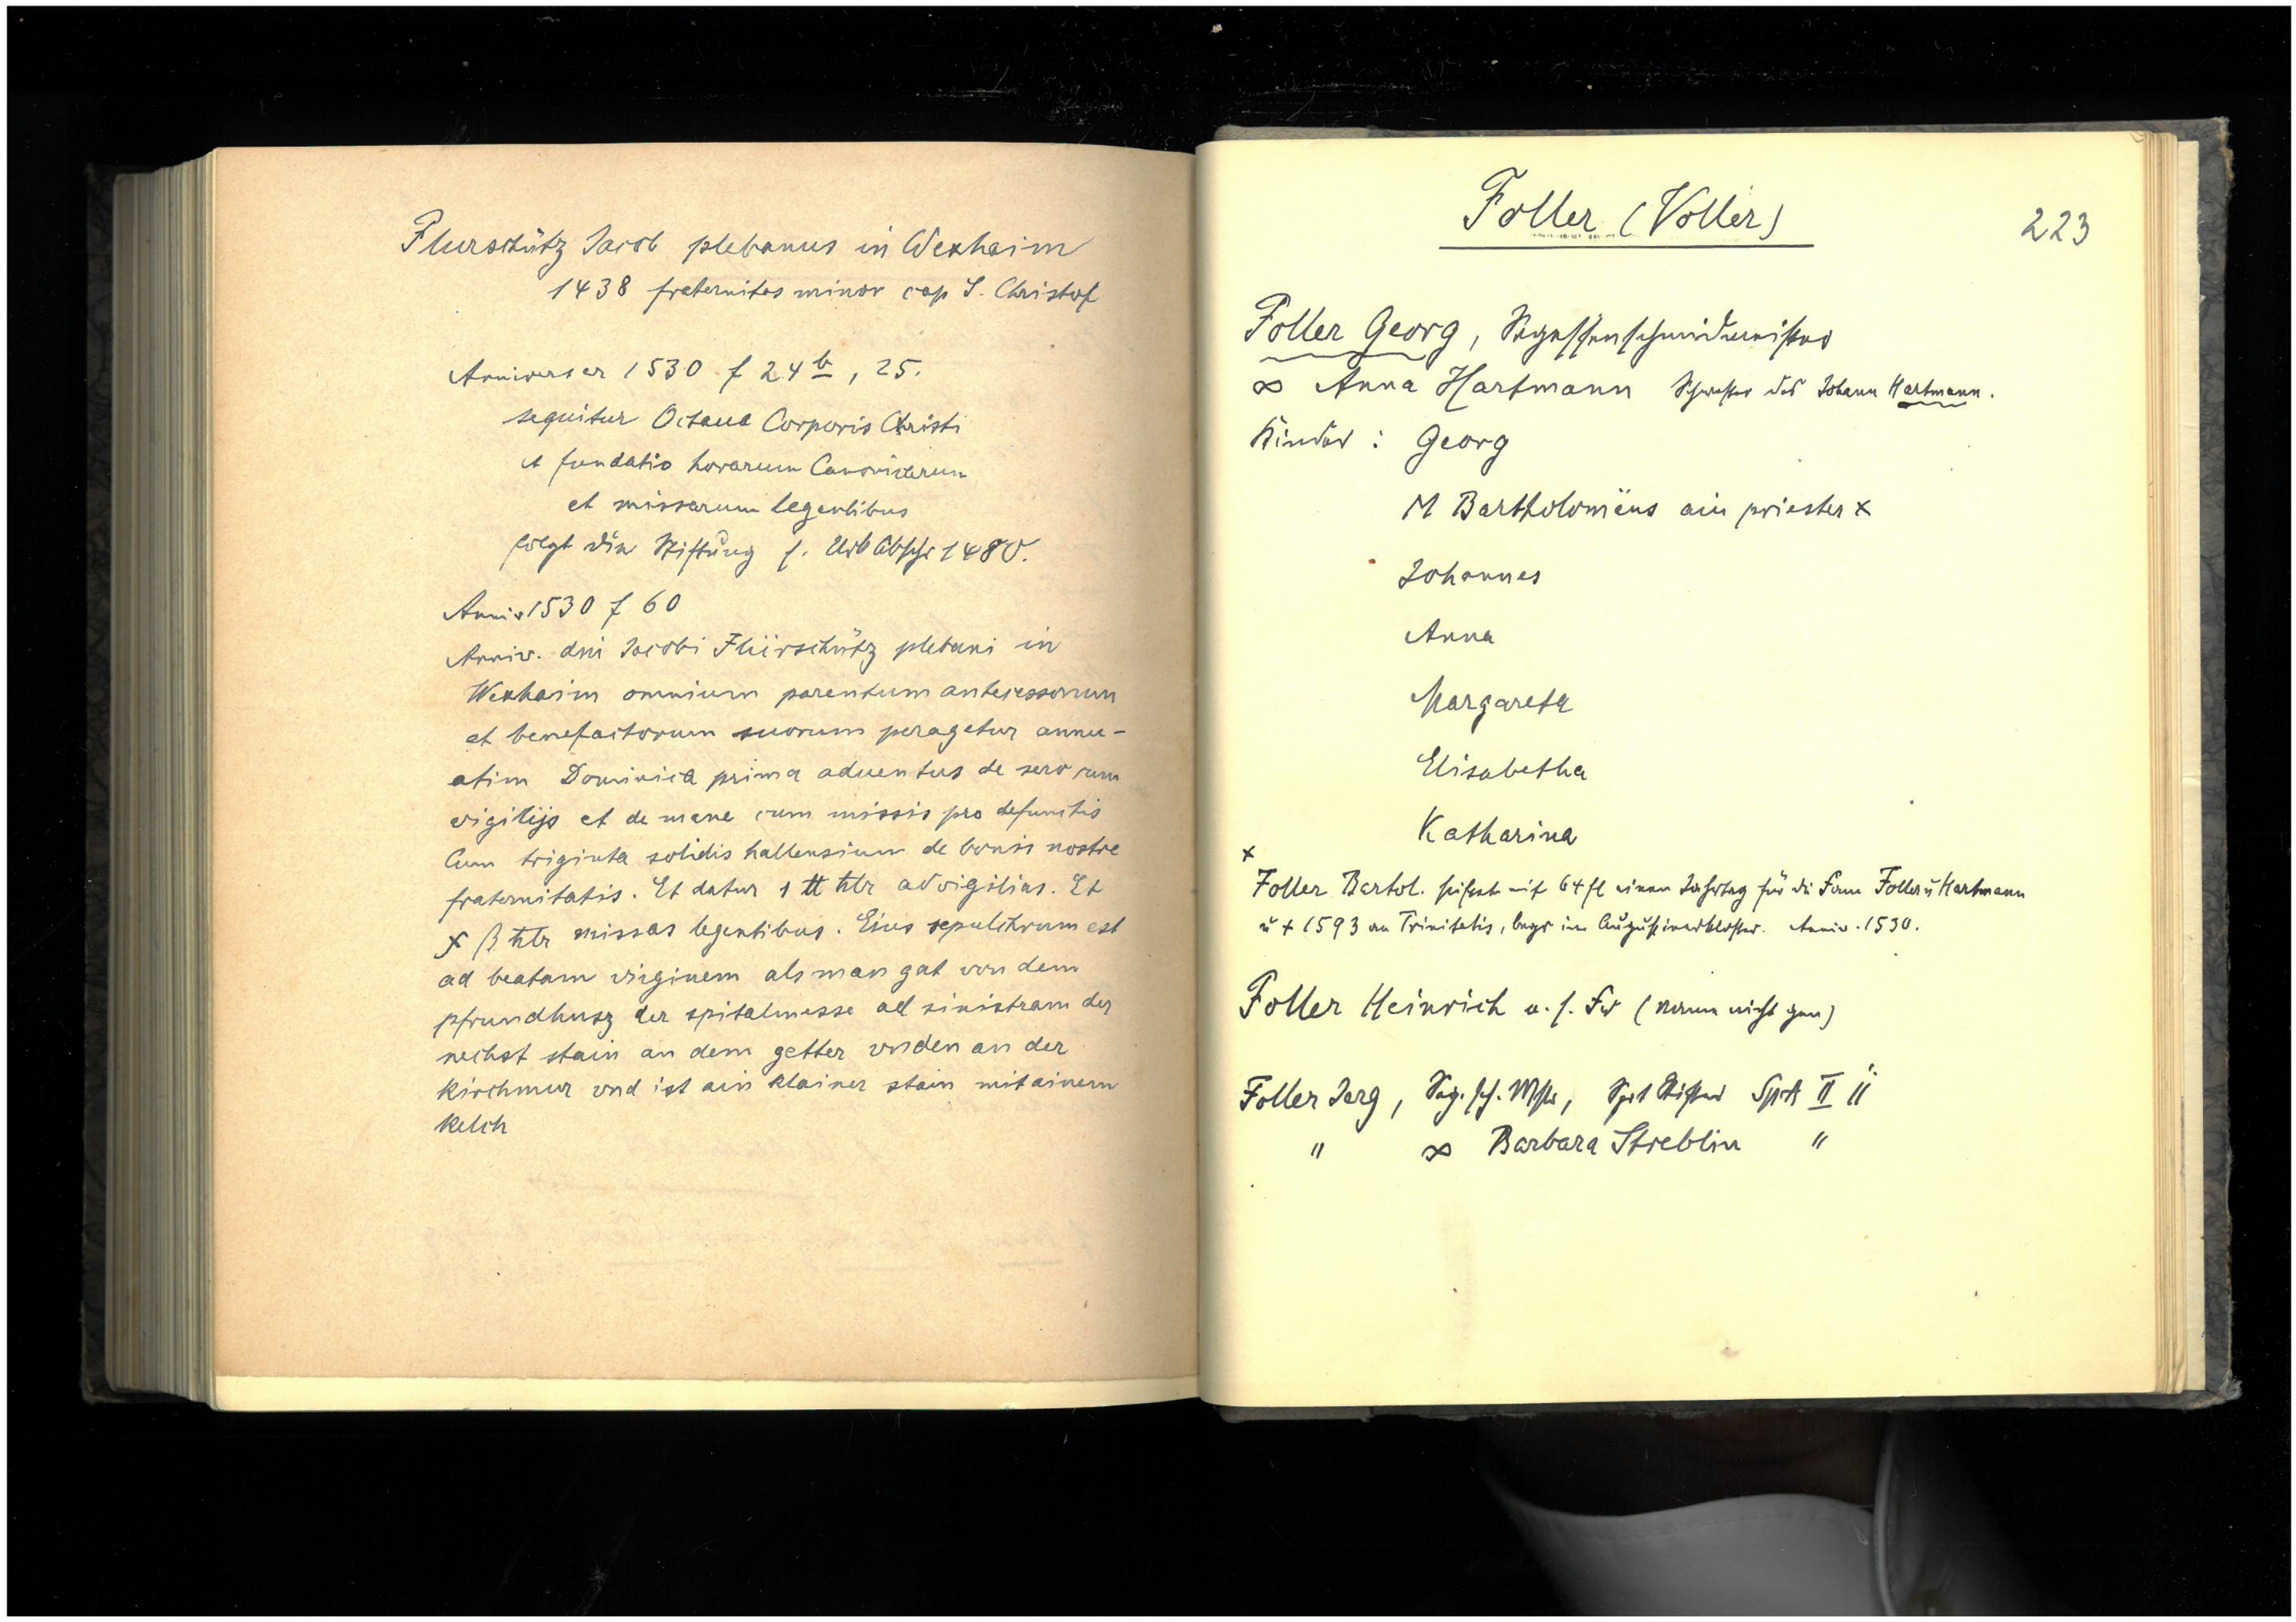 Flurschütz Jacob plebanus in Wexhaim
1438 fraternitas minor cap S. Christof
Anniverser 1530 f 24 b, 25.
sequitur Octaua Corporis Christi
et fundatio horarum Canonicarum
et missarum legentibus
folgt die Stiftung s. Urb Abschr 1480.
Anniv 1530 f 60
Anniv. dni Jacobi Flürschütz plebani in
Wexhaim omnium parentum antecessorum
et benefactorum suorum peragetur annu-
atim Dominica prima aduentus de sero cum
vigilijs et de mane cum missis pro defunctis
Cum triginta solidis hallensium de bonis nostre
fraternitatis. Et datur 1 ℔ hlr ad vigilias. Et
x ß hlr missas legentibus. Eius sepulchrum est
ad beatam virginem als man gat von dem
pfrundhusz der spitalmesse ad sinistram der
nechst stain an dem getter vnden an der
kirchmur vnd ist ain klainer stain mit ainem
kelch
Foller (Voller)
223
Foller Georg, Segessenschmidmeister
∞ Anna Hartmann Schwester des Johann Hartmann.
Kinder: Georg
M Bartholomëus ain priester x
Johannes
Anna
Margareta
Elisabetha
Katharina
x
Foller Bartol. stiftet mit 64 fl einen Jahrtag für die Fam Foller u Hartmann
u + 1593 an Trinitatis, begr im Augustinerkloster. Anniv. 1530.
Foller Heinrich u. s. Fr (Name nicht gen)
Foller Jerg, Seg. sch. Mstr, Stifter II "
" ∞ Barbara Streblin "